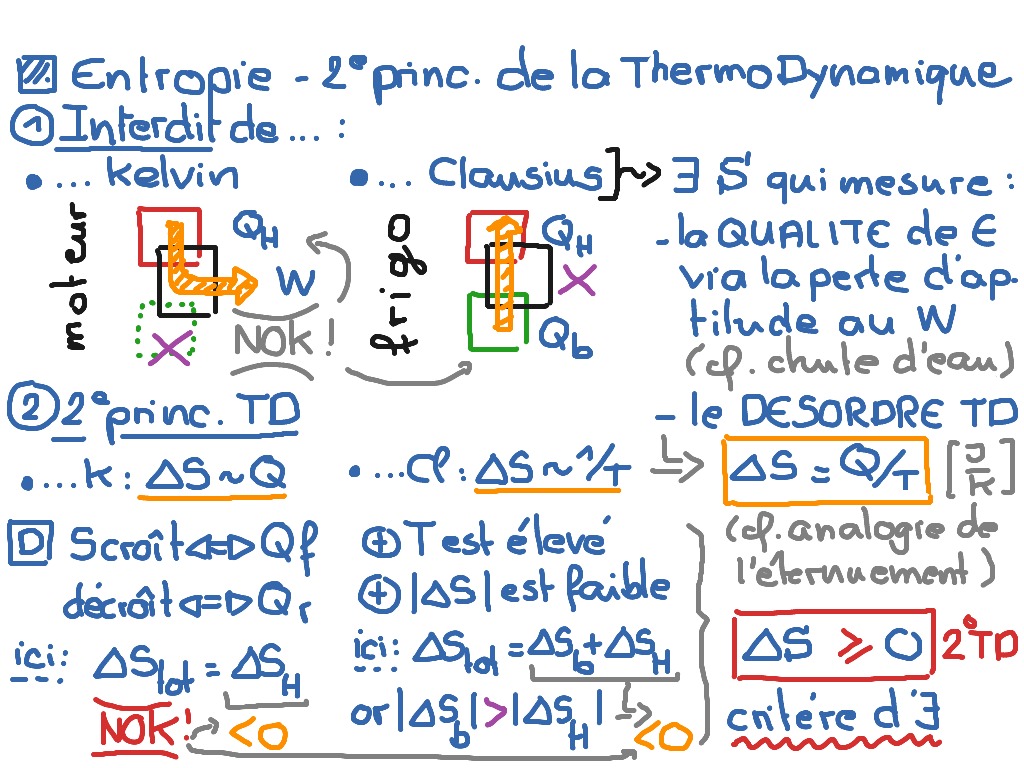 Entropie - 2e princ. de la ThermoDynamique
① Interdit de ... :
• ... Kelvin
• ... Clausius ] ~> ∃ S qui mesure :
moteur
QH
W
NOK !
frigo
QH
Qb
- la QUALITE de E
via la perte d'ap-
titude au W
(cf. chute d'eau)
- le DESORDRE TD
② 2e princ. TD
• ... K : ΔS ~ Q
• ... Cl : ΔS ~ 1/T
ΔS = Q/T [J/K]
(cf. analogie de
l'éternuement)
D S croît <=> Qf
décroît <=> Qr
ici : ΔStot = ΔSH
NOK ! <0
⊕ T est élevé
⊕ |ΔS| est faible
ici : ΔStot = ΔSb + ΔSH
or |ΔSb| > |ΔSH| <0
ΔS ⩾ 0 2°TD
critére d'∃